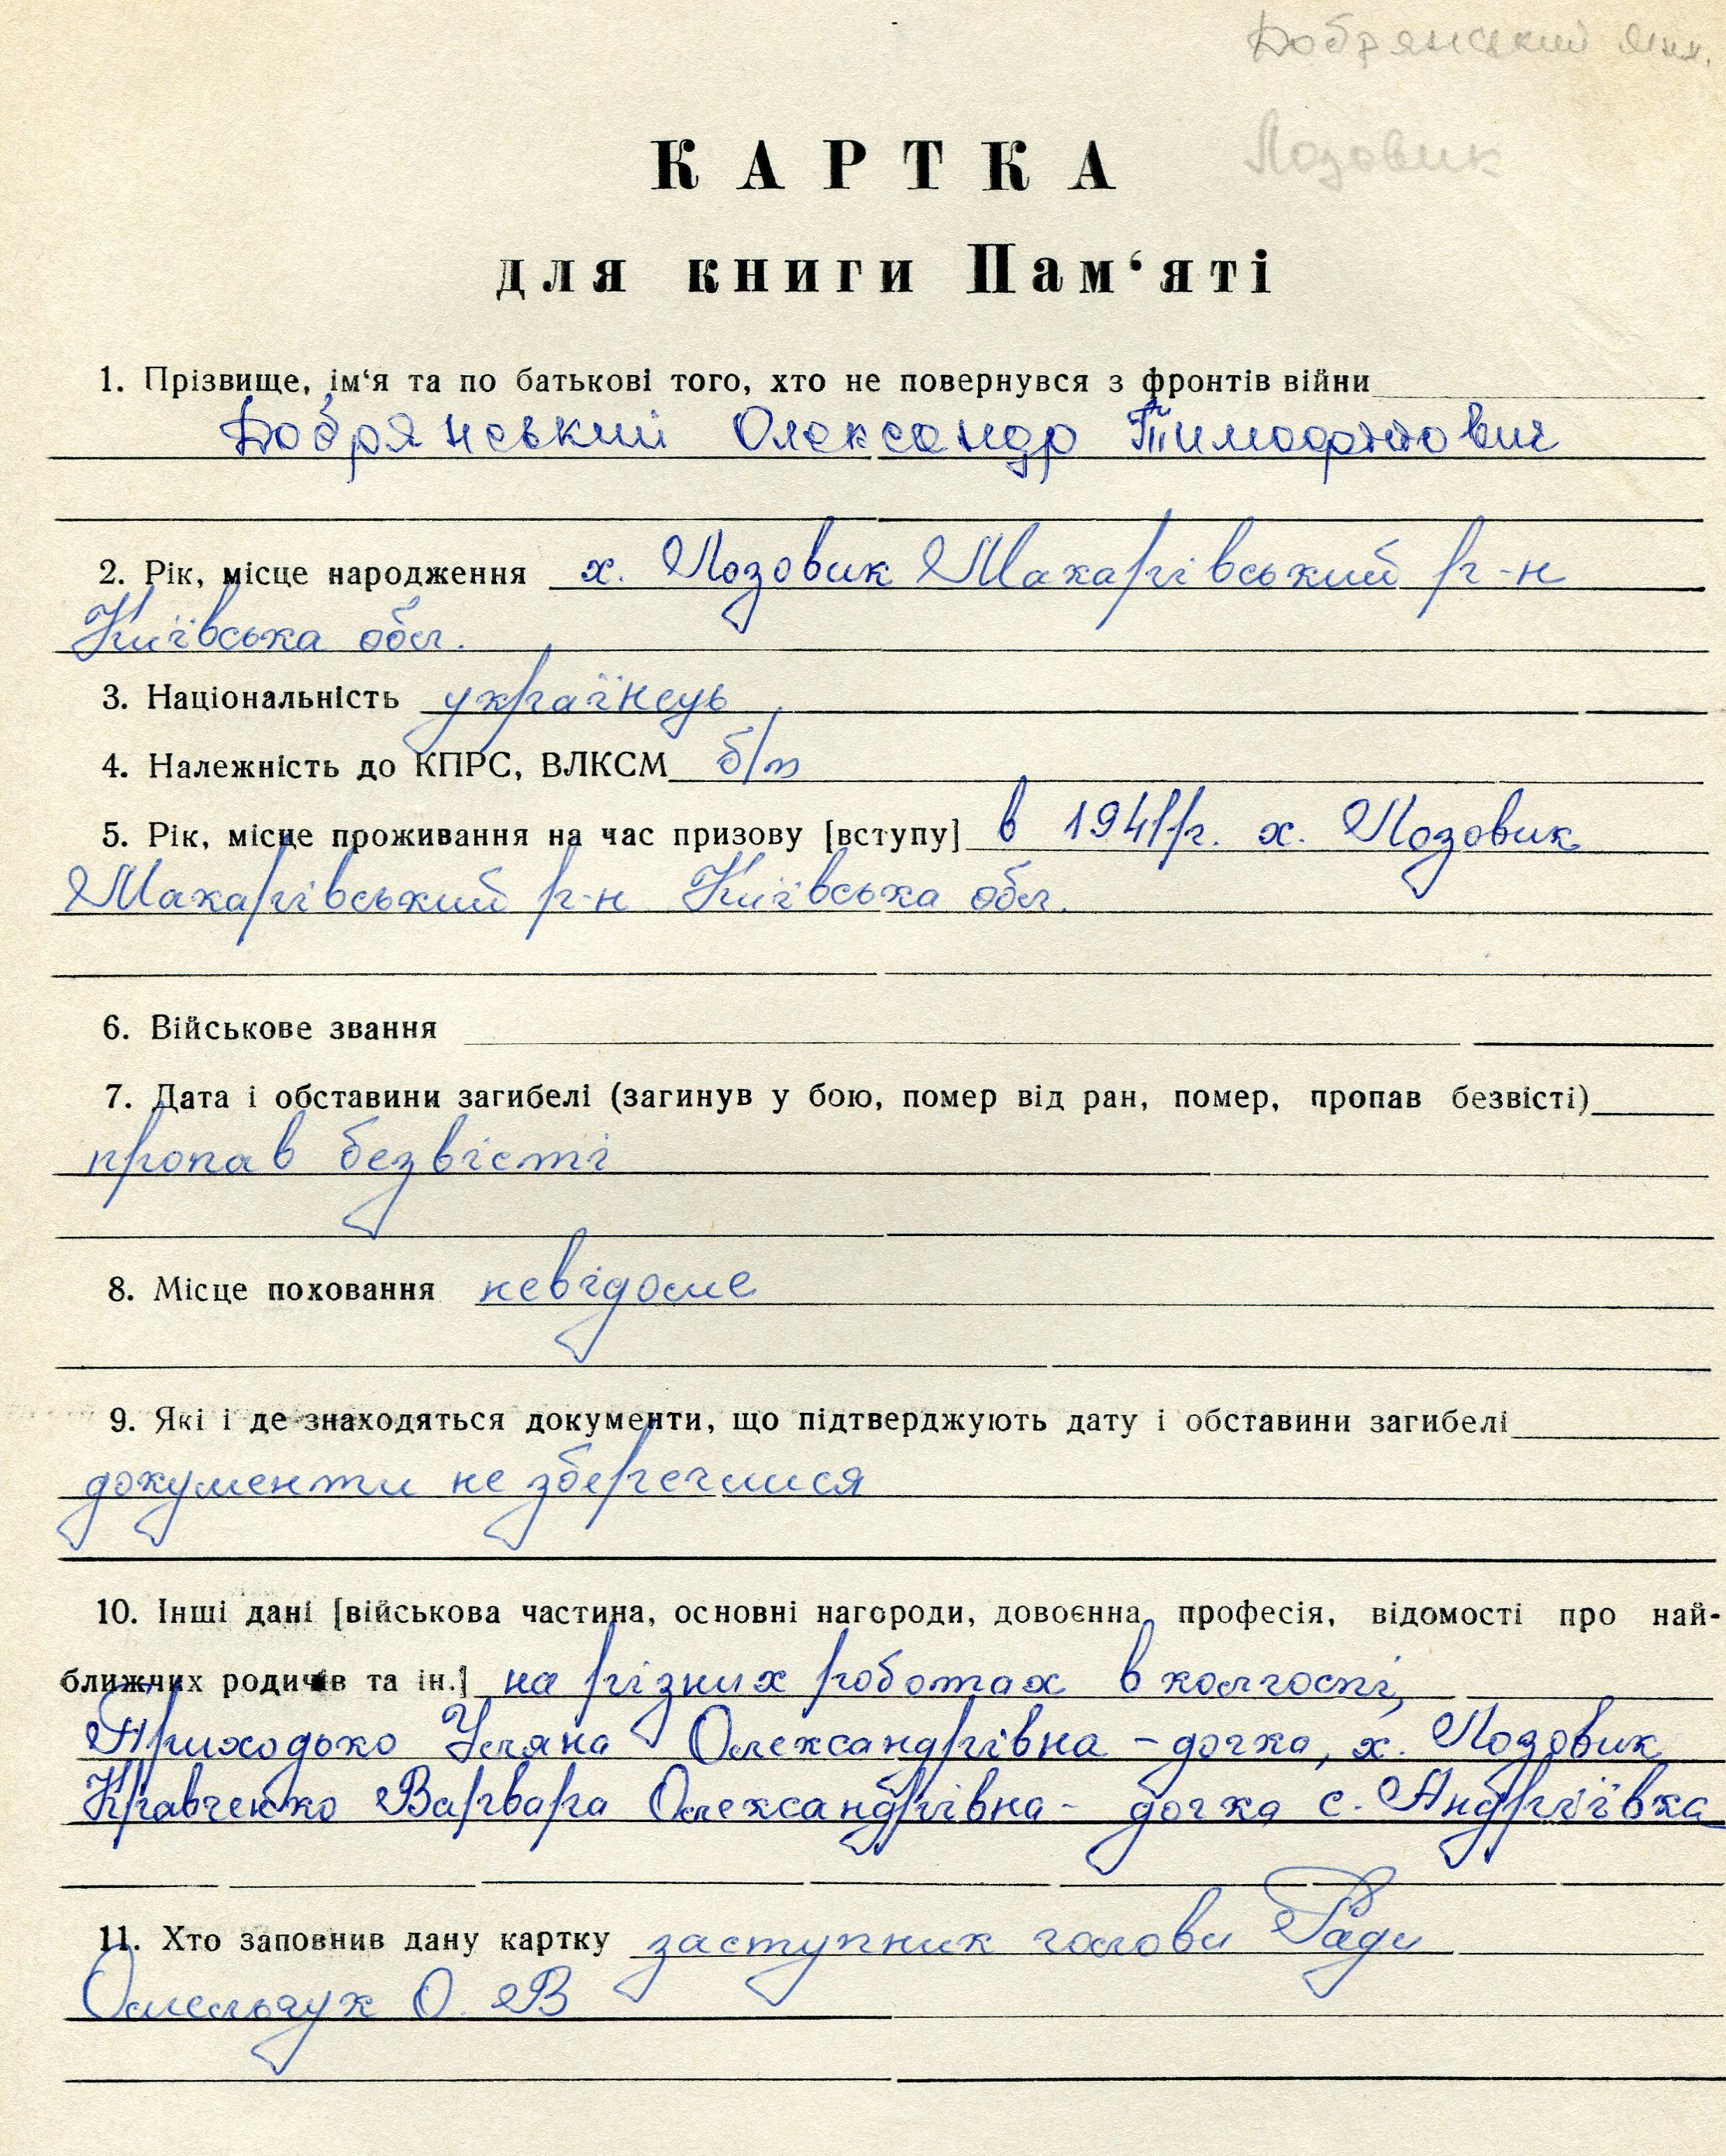 Добрянський
Лозовик
КАРТКА
для книги Пам‘яті
1. Прізвище, ім‘я та по батькові того, хто не повернувся з фронтів війни
Добрянський Олександр Тимофійович
2. Рік, місце народження х. Лозовик Макарівський р-н
Київська обл.
3. Національність українець
4. Належність до КПРС, ВЛКСМ б/п
5. Рік, місце проживання на час призову [вступу] в 1941 р. х. Лозовик
Макарівський р-н Київська обл.
6. Військове звання
7. Дата і обставини загибелі (загинув у бою, помер від ран, помер, пропав безвісті)
пропав безвісті
8. Місце поховання невідоме
9. Які і де знаходяться документи, що підтверджують дату і обставини загибелі
документи не збереглися
10. Інші дані [військова частина, основні нагороди, довоєнна професія, відомості про най-
ближчих родичів та ін.] на різних роботах в колгоспі,
Приходько Уляна Олександрівна - дочка, х. Лозовик
Кравченко Варвара Олександрівна - дочка с. Андріївка
11. Хто заповнив дану картку заступник голови Ради
Омельчук О. В